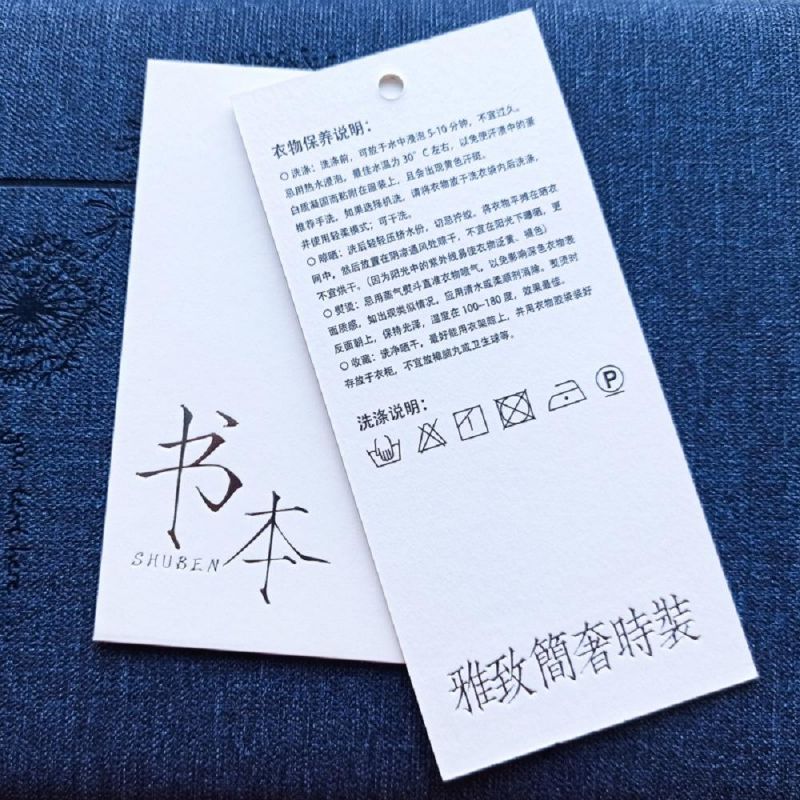 书本
SHUBEN
衣物保养说明：
○ 洗涤：洗涤前，可放于水中浸泡 5-10 分钟，不宜过久。
忌用热水浸泡，最佳水温为 30°C 左右，以免使汗渍中的蛋
白质凝固而粘附在服装上，且会出现黄色汗斑。
推荐手洗，如果选择机洗，请将衣物放于洗衣袋内后洗涤，
并使用轻柔模式；可干洗。
○ 晾晒：洗后轻轻压挤水份，切忌拧绞，将衣物平摊在晒衣
网中，然后放置在阴凉通风处晾干，不宜在阳光下曝晒，更
不宜烘干。（因为阳光中的紫外线易使衣物泛黄、褪色）
○ 熨烫：忌用蒸气熨斗直准衣物喷气，以免影响深色衣物表
面质感，如出现类似情况，应用清水或柔顺剂消除。熨烫时
反面朝上，保持光泽，温度在 100-180度，效果最佳。
○ 收藏：洗净晒干，最好能用衣架晾上，并用衣物胶袋装好
存放于衣柜，不宜放樟脑丸或卫生球等。
洗涤说明：
P
雅致簡奢時裝